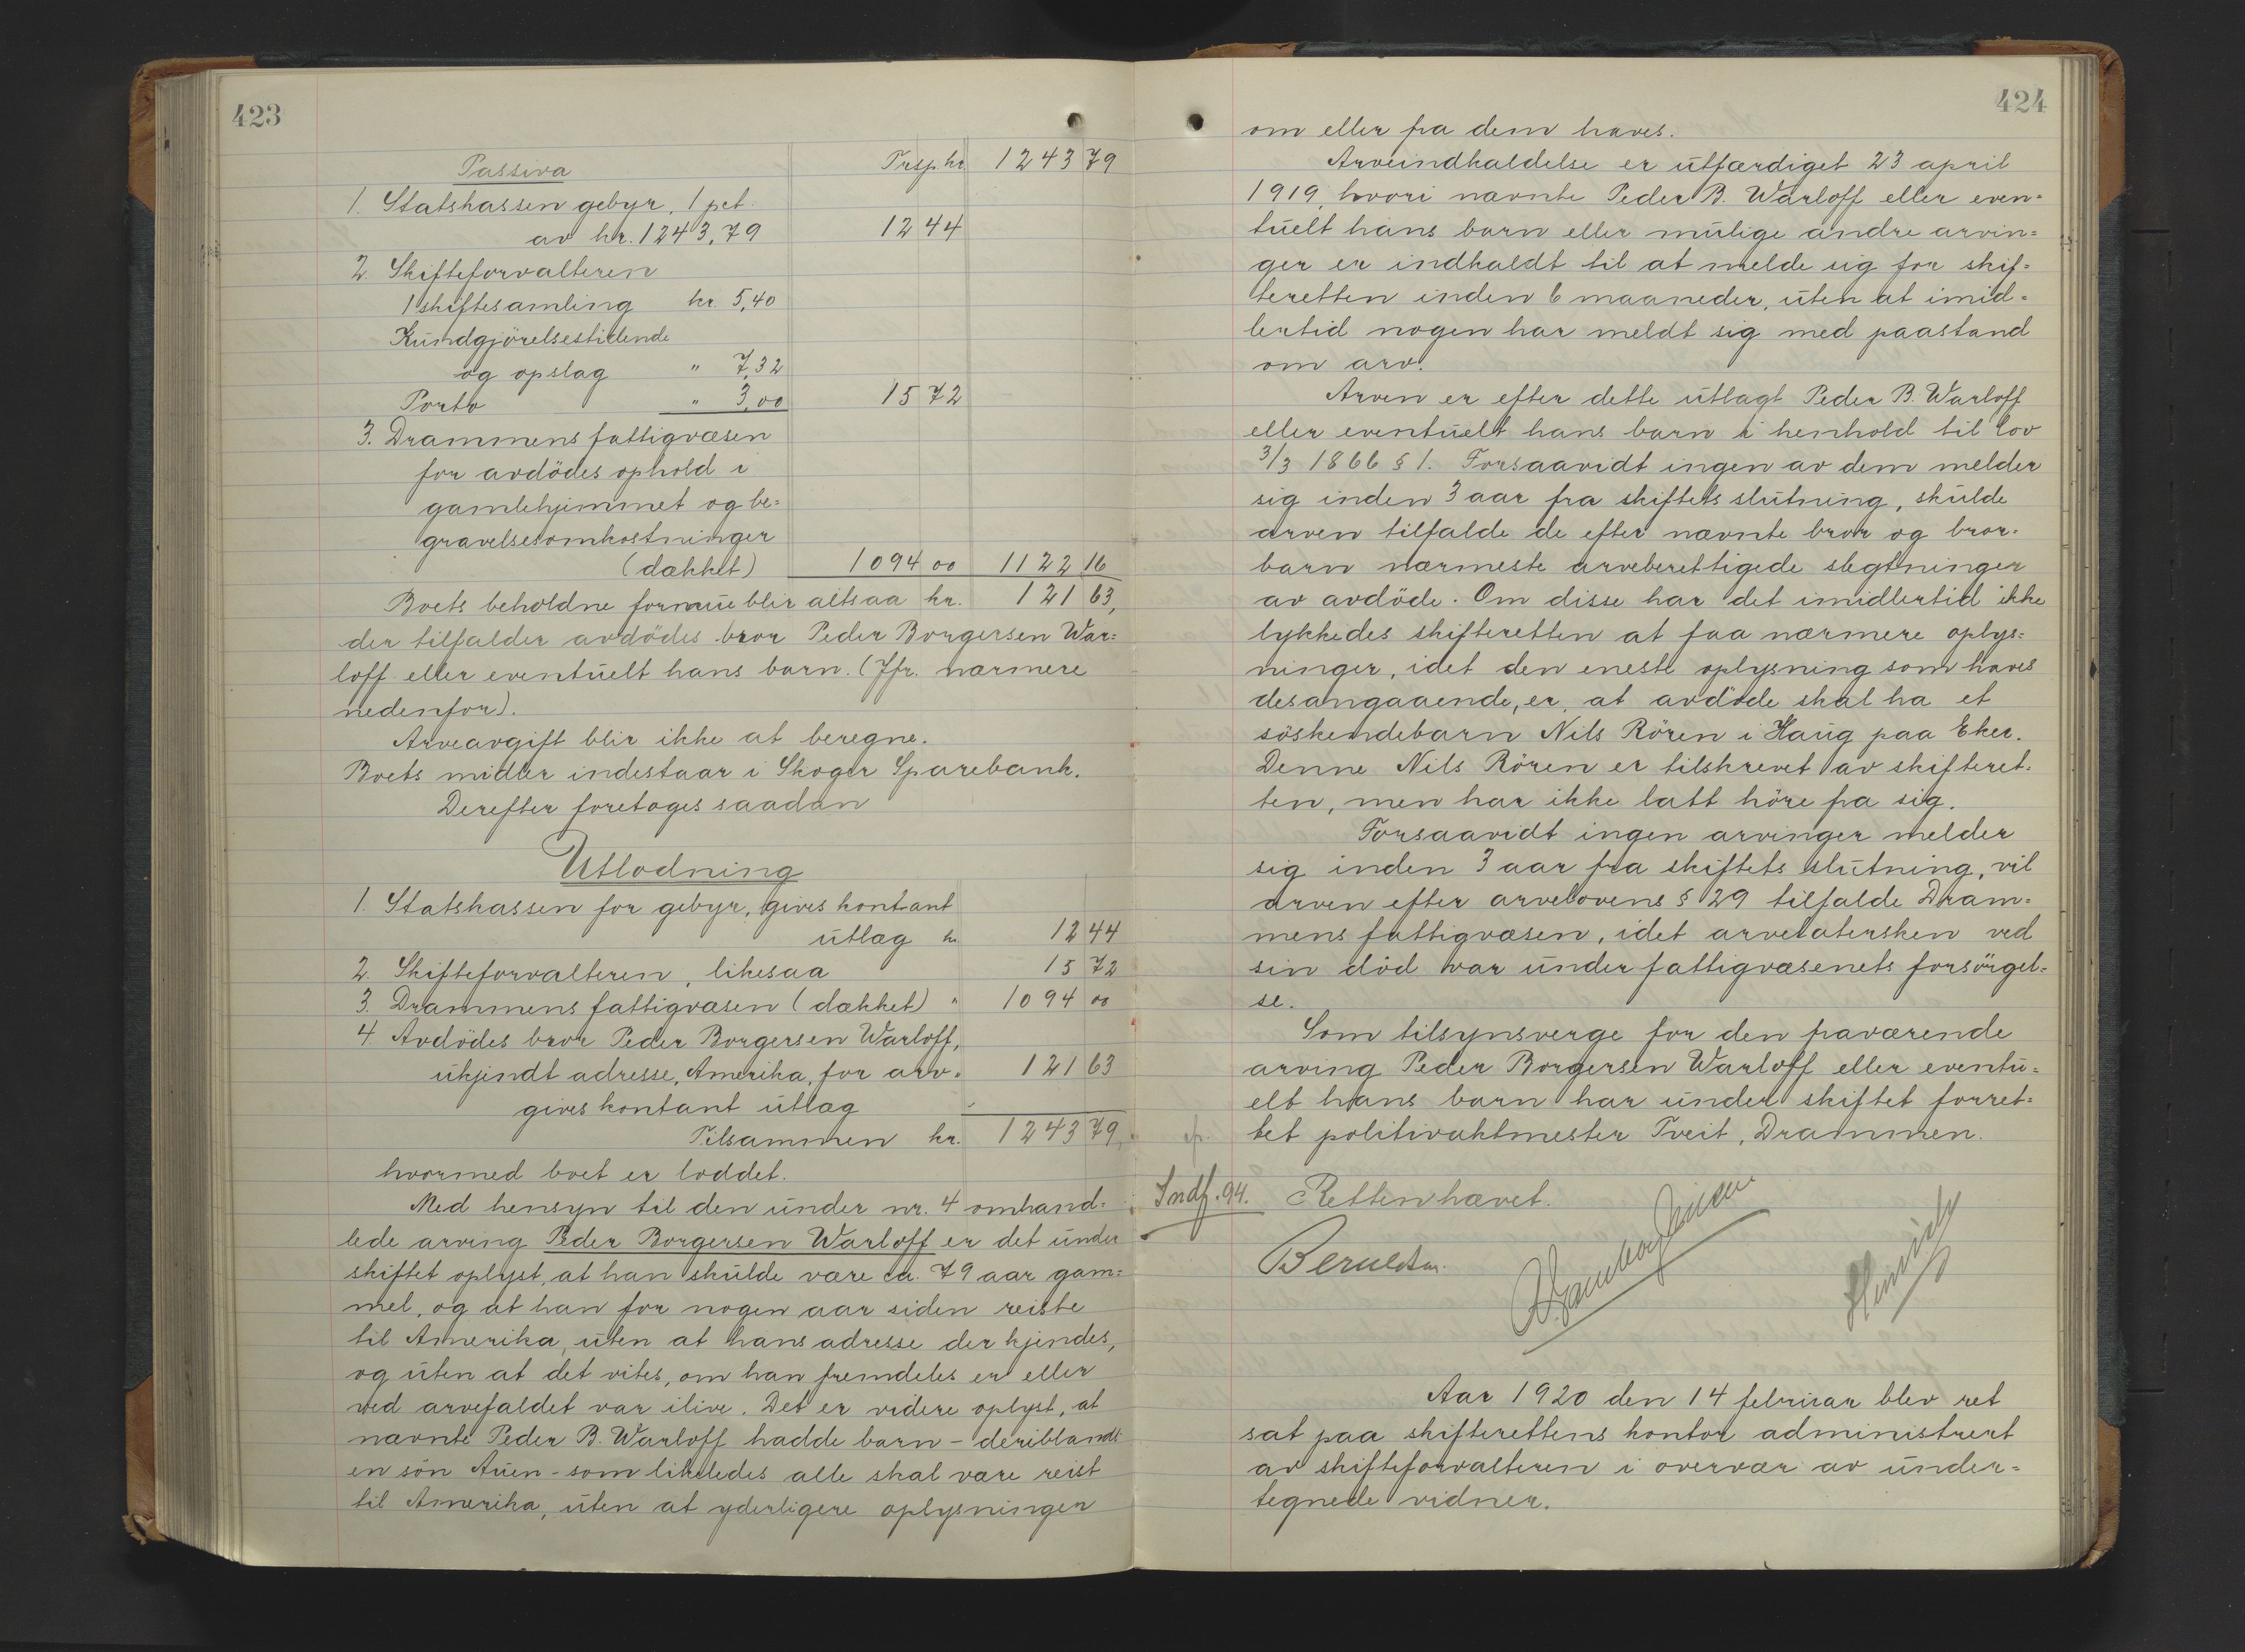 423
Passiva Trsp. kr. 1243 79
1. Statskassen gebyr, 1 pct.
av kr. 1243,79 12 44
2. Skifteforvalteren
1 skiftesamling kr. 5,40
Kundgjörelsestidende
og opslag " 7,32
Porto " 3,00 15 72
3. Drammens fattigvæsen
for avdödes ophold i
gamlehjemmet og be=
gravelsesomkostninger
(dækket) 1094 00 1122 16
Boets beholdne formue blir altsaa kr. 121 63,
der tilfalder avdödes bror Peder Borgersen War=
loff eller eventuelt hans barn. (Jfr. nærmere
nedenfor).
Arveavgift blir ikke at beregne.
Boets midler indestaar i Skoger Sparebank.
Derefter foretoges saadan
Utlodning
1. Statskassen for gebyr, gives kontant
utlæg kr. 12 44
2. Skifteforvalteren, likesaa 15 72
3. Drammens fattigvæsen (dækket) " 1094 00
4. Avdödes bror Peder Borgersen Warloff,
ukjendt adresse, Amerika, for arv " 121 63
gives kontant utlæg
Tilsammen kr. 1243 79,
hvormed boet er loddet.
Med hensyn til den under nr. 4 omhand=
lede arving Peder Borgersen Warloff er det under
skiftet oplyst, at han skulde være ca. 79 aar gam=
mel, og at han for nogen aar siden reiste
til Amerika, uten at hans adresse der kjendes,
og uten at det vites, om han fremdeles er eller
ved arvefaldet var ilive. Det er videre oplyst, at
nævnte Peder B. Warloff hadde barn - deriblandt
en sön Auen - som likeledes alle skal være reist
til Amerika, uten at yderligere oplysninger
424
om eller fra dem haves.
Arveindkaldelse er utfærdiget 23 april
1919, hvori nævnte Peder B. Warloff eller even=
tuelt hans barn eller mulige andre arvin=
ger er indkaldt til at melde sig for skif=
teretten inden 6 maaneder, uten at imid=
lertid nogen har meldt sig med paastand
om arv.
Arven er efter dette utlagt Peder B. Warloff
eller eventuelt hans barn i henhold til lov
3/3 1866 § 1. Forsaavidt ingen av dem melder
sig inden 3 aar fra skiftets slutning, skulde
arven tilfalde de efter nævnte bror og bror=
barn nærmeste arveberettigede slegtninger
av avdöde. Om disse har det imidlertid ikke
lykkedes skifteretten at faa nærmere oplys=
ninger, idet den eneste oplysning som haves
desangaaende, er, at avdöde skal ha et
söskendebarn Nils Rören i Haug paa Eker.
Denne Nils Rören er tilskrevet av skifteret=
ten, men har ikke latt höre fra sig.
Forsaavidt ingen arvinger melder
sig inden 3 aar fra skiftets slutning, vil
arven efter arvelovens § 29 tilfalde Dram=
mens fattigvæsen, idet arvelatersken ved
sin död var under fattigvæsenets forsörgel=
se.
Som tilsynsverge for den fraværende
arving Peder Borgersen Warloff eller eventu=
elt hans barn har under skiftet forret=
tet politivaktmester Tveit, Drammen.
Indf. 94. Retten hævet.
Aar 1920 den 14 februar blev ret
sat paa skifterettens kontor administrert
av skifteforvalteren i overvær av under=
tegnede vidner.